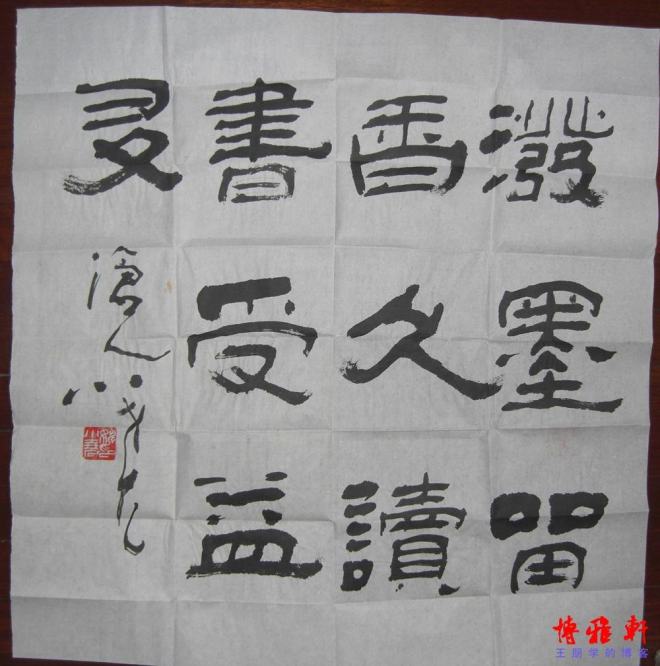 潑墨留
香久讀
書受益
多
博雅軒
王朋学的博客